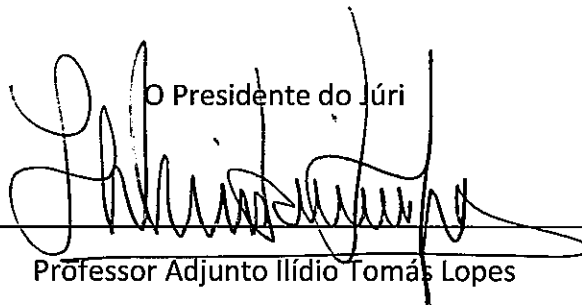 O Presidente do Júri
Professor Adjunto Ilídio Tomás Lopes